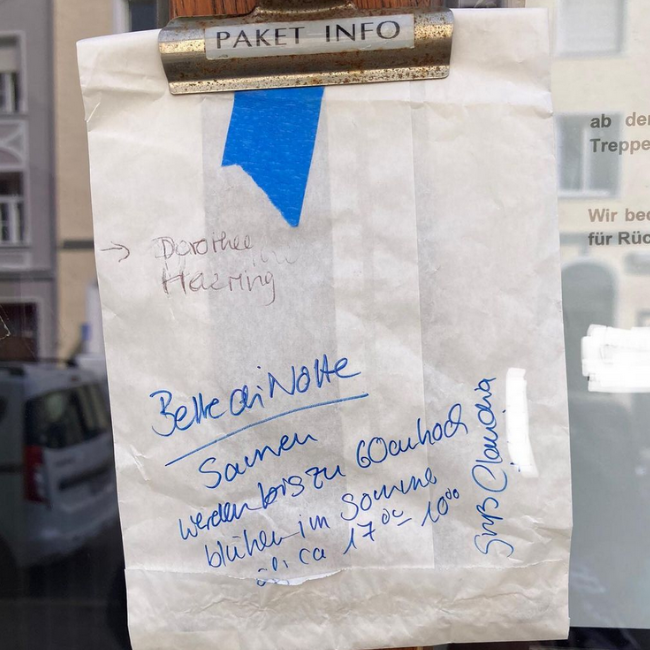 PAKET INFO
ab der
Treppe
Wir be
für Rüc
→ Dorothee
Haering
Belle di Notte
Samen
werden bis zu 60cm hoch
blühen im Sommer
ca 17⁰⁰ – 10⁰⁰
Gruß Claudia